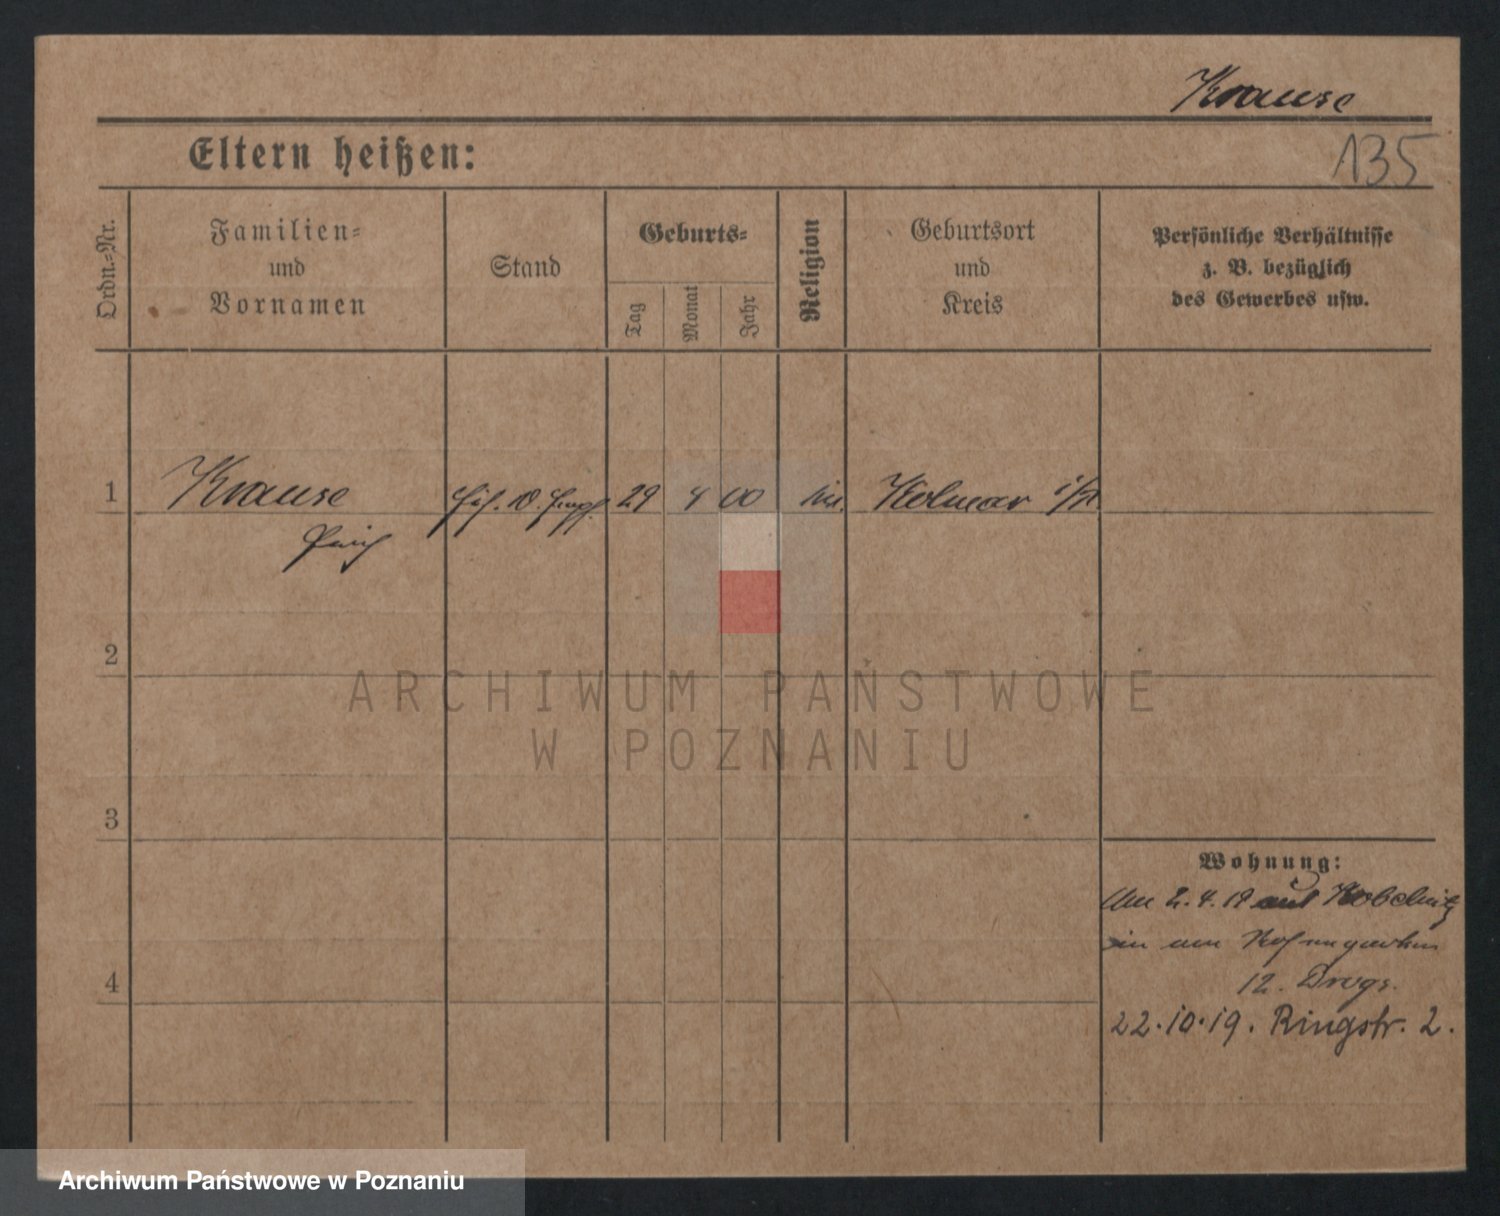 Krause
135
Eltern heißen:
Ordn.-Nr.
Familien-
und
Vornamen
Stand
Geburts-
Tag
Monat
Jahr
Religion
Geburtsort
und
Kreis
Persönliche Verhältnisse
z. B. bezüglich
des Gewerbes usw.
1
Krause
29 4 00
Kolmar i/P.
2
ARCHIWUM PAŃSTWOWE
W POZNANIU
3
Wohnung:
2. 4. 19 aus Kobelnitz
in
12. Drogs.
4
22.10.19. Ringstr. 2.
Archiwum Państwowe w Poznaniu